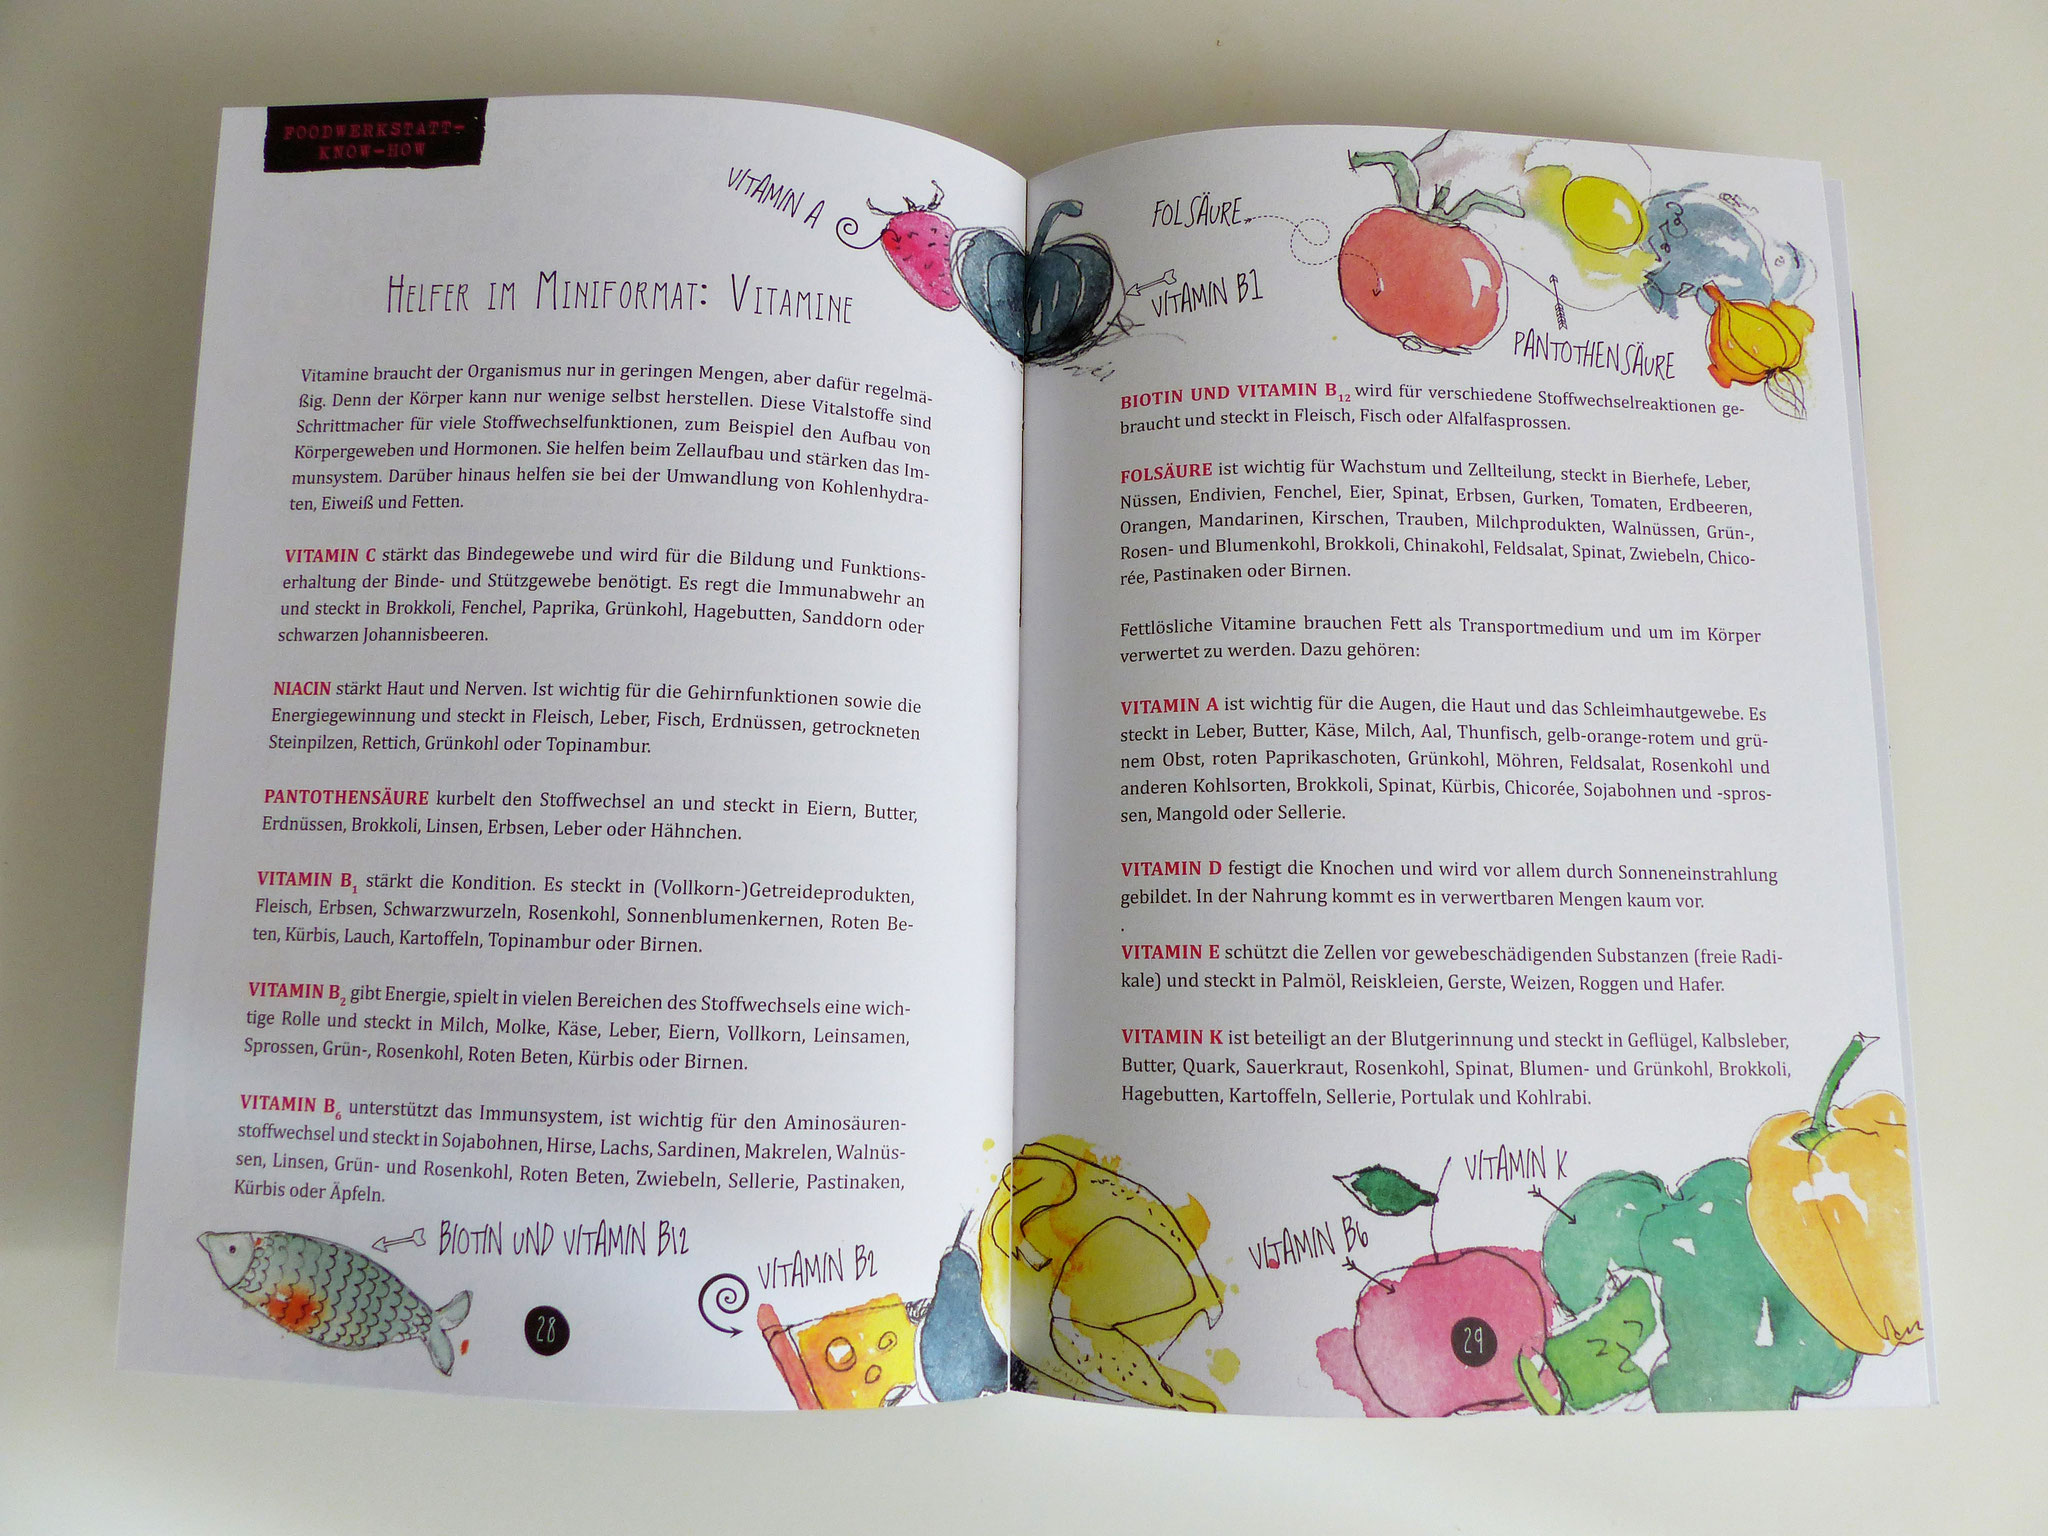 FOODWERKSTATT-
KNOW-HOW
VITAMIN A
HELFER IM MINIFORMAT: VITAMINE
Vitamine braucht der Organismus nur in geringen Mengen, aber dafür regelmä-
ßig. Denn der Körper kann nur wenige selbst herstellen. Diese Vitalstoffe sind
Schrittmacher für viele Stoffwechselfunktionen, zum Beispiel den Aufbau von
Körpergeweben und Hormonen. Sie helfen beim Zellaufbau und stärken das Im-
munsystem. Darüber hinaus helfen sie bei der Umwandlung von Kohlenhydra-
ten, Eiweiß und Fetten.
VITAMIN C stärkt das Bindegewebe und wird für die Bildung und Funktions-
erhaltung der Binde- und Stützgewebe benötigt. Es regt die Immunabwehr an
und steckt in Brokkoli, Fenchel, Paprika, Grünkohl, Hagebutten, Sanddorn oder
schwarzen Johannisbeeren.
NIACIN stärkt Haut und Nerven. Ist wichtig für die Gehirnfunktionen sowie die
Energiegewinnung und steckt in Fleisch, Leber, Fisch, Erdnüssen, getrockneten
Steinpilzen, Rettich, Grünkohl oder Topinambur.
PANTOTHENSÄURE kurbelt den Stoffwechsel an und steckt in Eiern, Butter,
Erdnüssen, Brokkoli, Linsen, Erbsen, Leber oder Hähnchen.
VITAMIN B₁ stärkt die Kondition. Es steckt in (Vollkorn-)Getreideprodukten,
Fleisch, Erbsen, Schwarzwurzeln, Rosenkohl, Sonnenblumenkernen, Roten Be-
ten, Kürbis, Lauch, Kartoffeln, Topinambur oder Birnen.
VITAMIN B₂ gibt Energie, spielt in vielen Bereichen des Stoffwechsels eine wich-
tige Rolle und steckt in Milch, Molke, Käse, Leber, Eiern, Vollkorn, Leinsamen,
Sprossen, Grün-, Rosenkohl, Roten Beten, Kürbis oder Birnen.
VITAMIN B₆ unterstützt das Immunsystem, ist wichtig für den Aminosäuren-
stoffwechsel und steckt in Sojabohnen, Hirse, Lachs, Sardinen, Makrelen, Walnüs-
sen, Linsen, Grün- und Rosenkohl, Roten Beten, Zwiebeln, Sellerie, Pastinaken,
Kürbis oder Äpfeln.
BIOTIN UND VITAMIN B12
VITAMIN B2
28
FOLSÄURE
VITAMIN B1
PANTOTHENSÄURE
BIOTIN UND VITAMIN B₁₂ wird für verschiedene Stoffwechselreaktionen ge-
braucht und steckt in Fleisch, Fisch oder Alfalfasprossen.
FOLSÄURE ist wichtig für Wachstum und Zellteilung, steckt in Bierhefe, Leber,
Nüssen, Endivien, Fenchel, Eier, Spinat, Erbsen, Gurken, Tomaten, Erdbeeren,
Orangen, Mandarinen, Kirschen, Trauben, Milchprodukten, Walnüssen, Grün-,
Rosen- und Blumenkohl, Brokkoli, Chinakohl, Feldsalat, Spinat, Zwiebeln, Chico-
rée, Pastinaken oder Birnen.
Fettlösliche Vitamine brauchen Fett als Transportmedium und um im Körper
verwertet zu werden. Dazu gehören:
VITAMIN A ist wichtig für die Augen, die Haut und das Schleimhautgewebe. Es
steckt in Leber, Butter, Käse, Milch, Aal, Thunfisch, gelb-orange-rotem und grü-
nem Obst, roten Paprikaschoten, Grünkohl, Möhren, Feldsalat, Rosenkohl und
anderen Kohlsorten, Brokkoli, Spinat, Kürbis, Chicorée, Sojabohnen und -spros-
sen, Mangold oder Sellerie.
VITAMIN D festigt die Knochen und wird vor allem durch Sonneneinstrahlung
gebildet. In der Nahrung kommt es in verwertbaren Mengen kaum vor.
.
VITAMIN E schützt die Zellen vor gewebeschädigenden Substanzen (freie Radi-
kale) und steckt in Palmöl, Reiskleien, Gerste, Weizen, Roggen und Hafer.
VITAMIN K ist beteiligt an der Blutgerinnung und steckt in Geflügel, Kalbsleber,
Butter, Quark, Sauerkraut, Rosenkohl, Spinat, Blumen- und Grünkohl, Brokkoli,
Hagebutten, Kartoffeln, Sellerie, Portulak und Kohlrabi.
VITAMIN K
VITAMIN B6
29